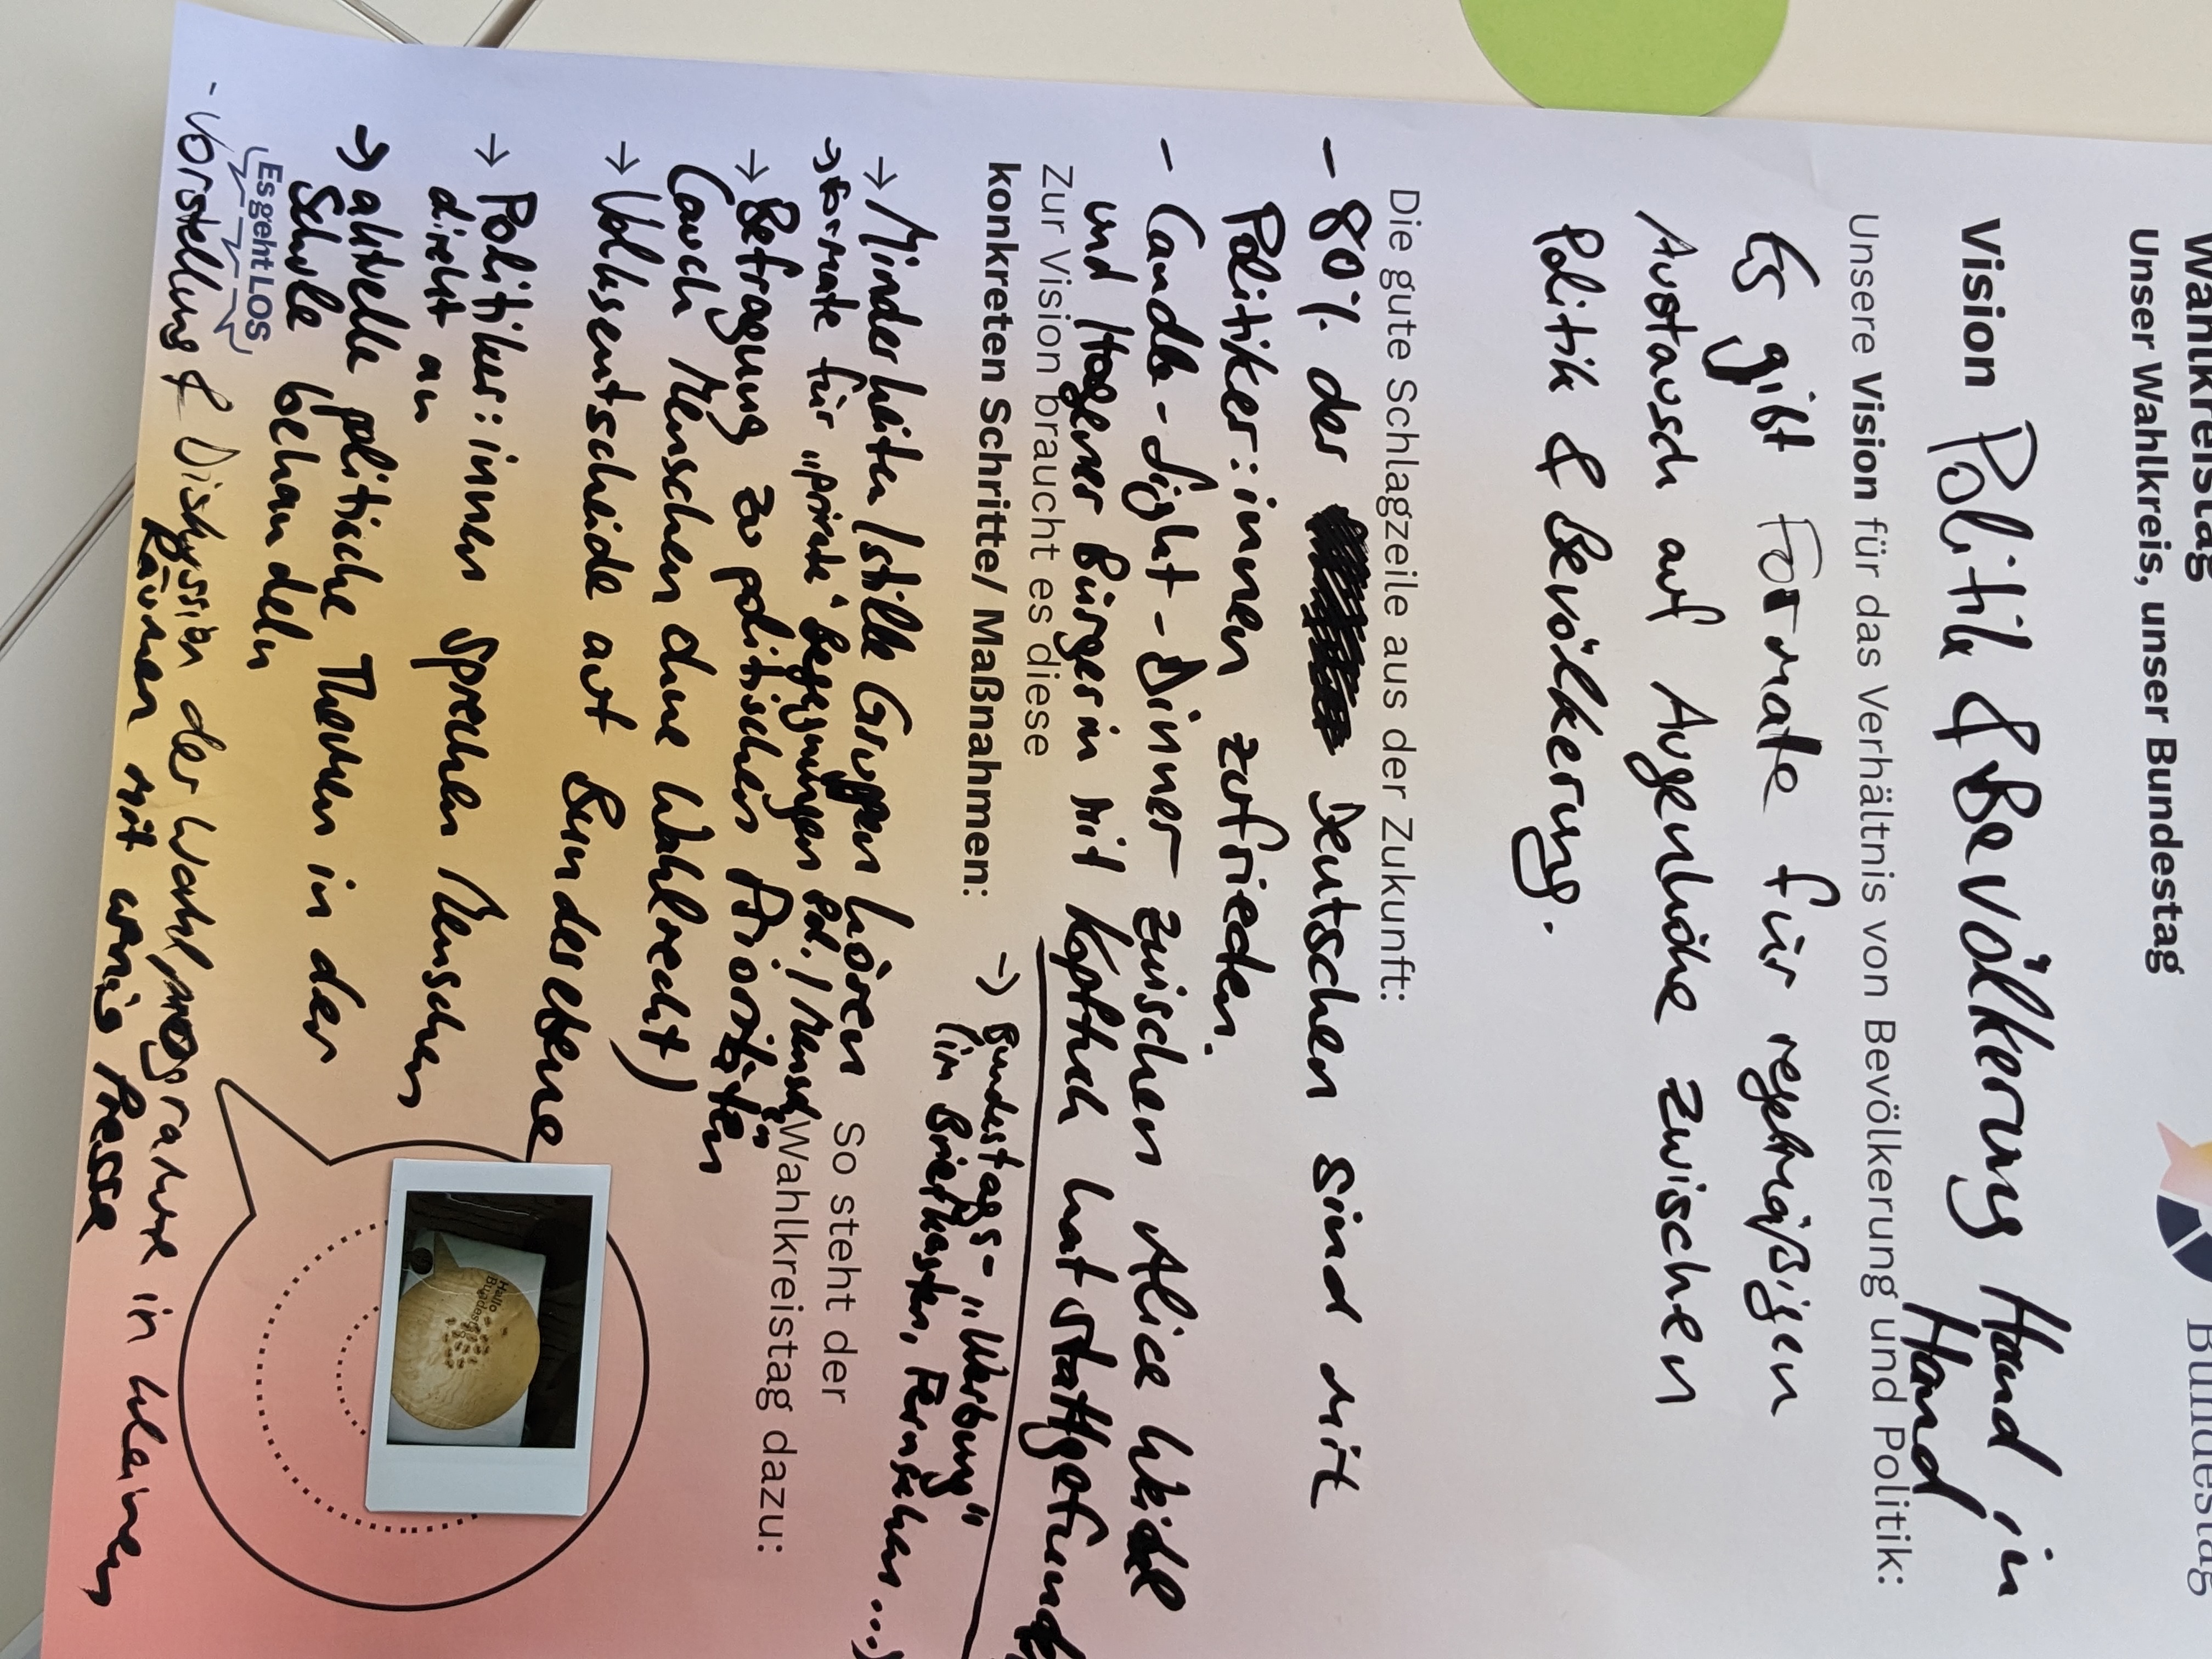 Wahlkreistag
Unser Wahlkreis, unser Bundestag
Bundestag
Vision Politik & Bevölkerung Hand in
Hand
Unsere Vision für das Verhältnis von Bevölkerung und Politik:
Es gibt Formate für regelmäßigen
Austausch auf Augenhöhe zwischen
Politik & Bevölkerung.
Die gute Schlagzeile aus der Zukunft:
- 80% der Deutschen sind mit
Politiker:innen zufrieden.
- Candle-Light-Dinner zwischen Alice Weidel
und Hagener Bürgerin mit Kopftuch hat stattgefunden
Zur Vision braucht es diese
konkreten Schritte/ Maßnahmen:
→ Bundestags-„Werbung"
(im Briefkasten, Fernsehen...)
→ Minderheiten/stille Gruppen hören
→ Formate für „private" Begegnungen Pol./Mensch"
→ Befragung zu politischen Prioritäten
(auch Menschen ohne Wahlrecht)
→ Volksentscheide auf Bundesebene
→ Politiker:innen sprechen Menschen
direkt an
→ aktuelle politische Themen in der
Schule behandeln
- Vorstellung & Diskussion der Wahlprogramme in kleinen
Räumen mit wenig Presse
So steht der
Wahlkreistag dazu:
Hallo
Bundestag
Es geht LOS